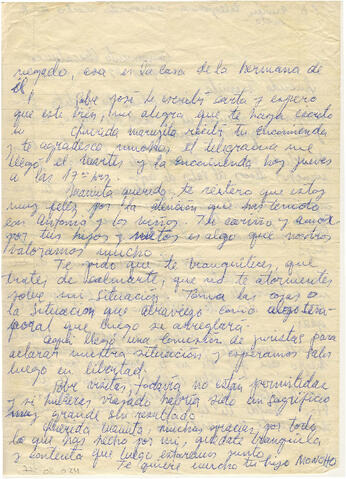 negado, esa es la casa de la hermana de
él.
Sobre José te escribí carta y espero
que esté bien, me alegra que te haya escrito
tu querida marujita recibí tu encomienda
y te agradezco muchos el telegrama me
llegó el martes y la encomienda hoy jueves
a las 17 hrs.
Mamita querida, te reitero que estoy
muy feliz por la atención que has tenido
con Antonio y los niños. Tu cariño y amor
por tus hijos y nietos es algo que nosotros
valoramos mucho.
Te pido que te tranquilices, que
trates de calmarte, que no te atormentes
sobre mi situación. Toma las cosas o
la situación que atravieso como algo tem-
poral que luego se arreglará.
Aquí llegó una comisión de juristas para
aclarar nuestra situación y esperamos salir
luego en libertad.
Sobre visitas, todavía no están permitidas
y si hubieras viajado habría sido un sacrificio
muy grande sin resultado.
Querida mamita, muchas gracias por todo
lo que has hecho por mí, quédate tranquila
y contenta que luego estaremos juntos.
Te quiere mucho tu hijo MONCHO